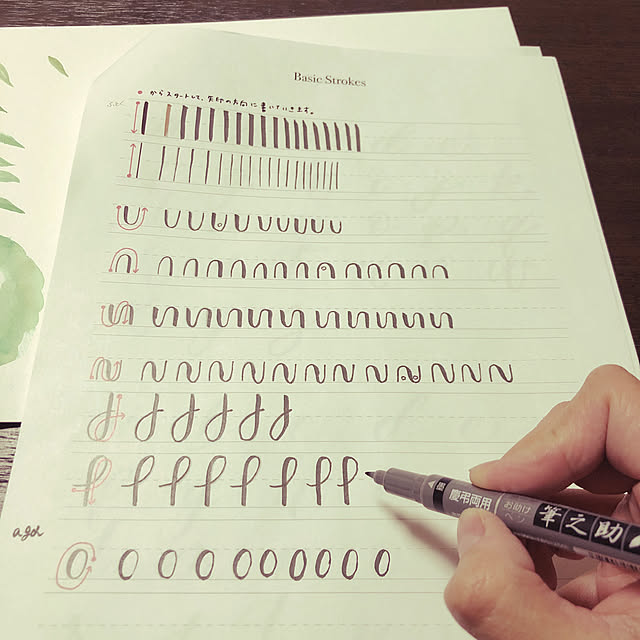 Basic Strokes
からスタートして、矢印の方向に書いていきます。
慶弔両用
お助け
筆之助